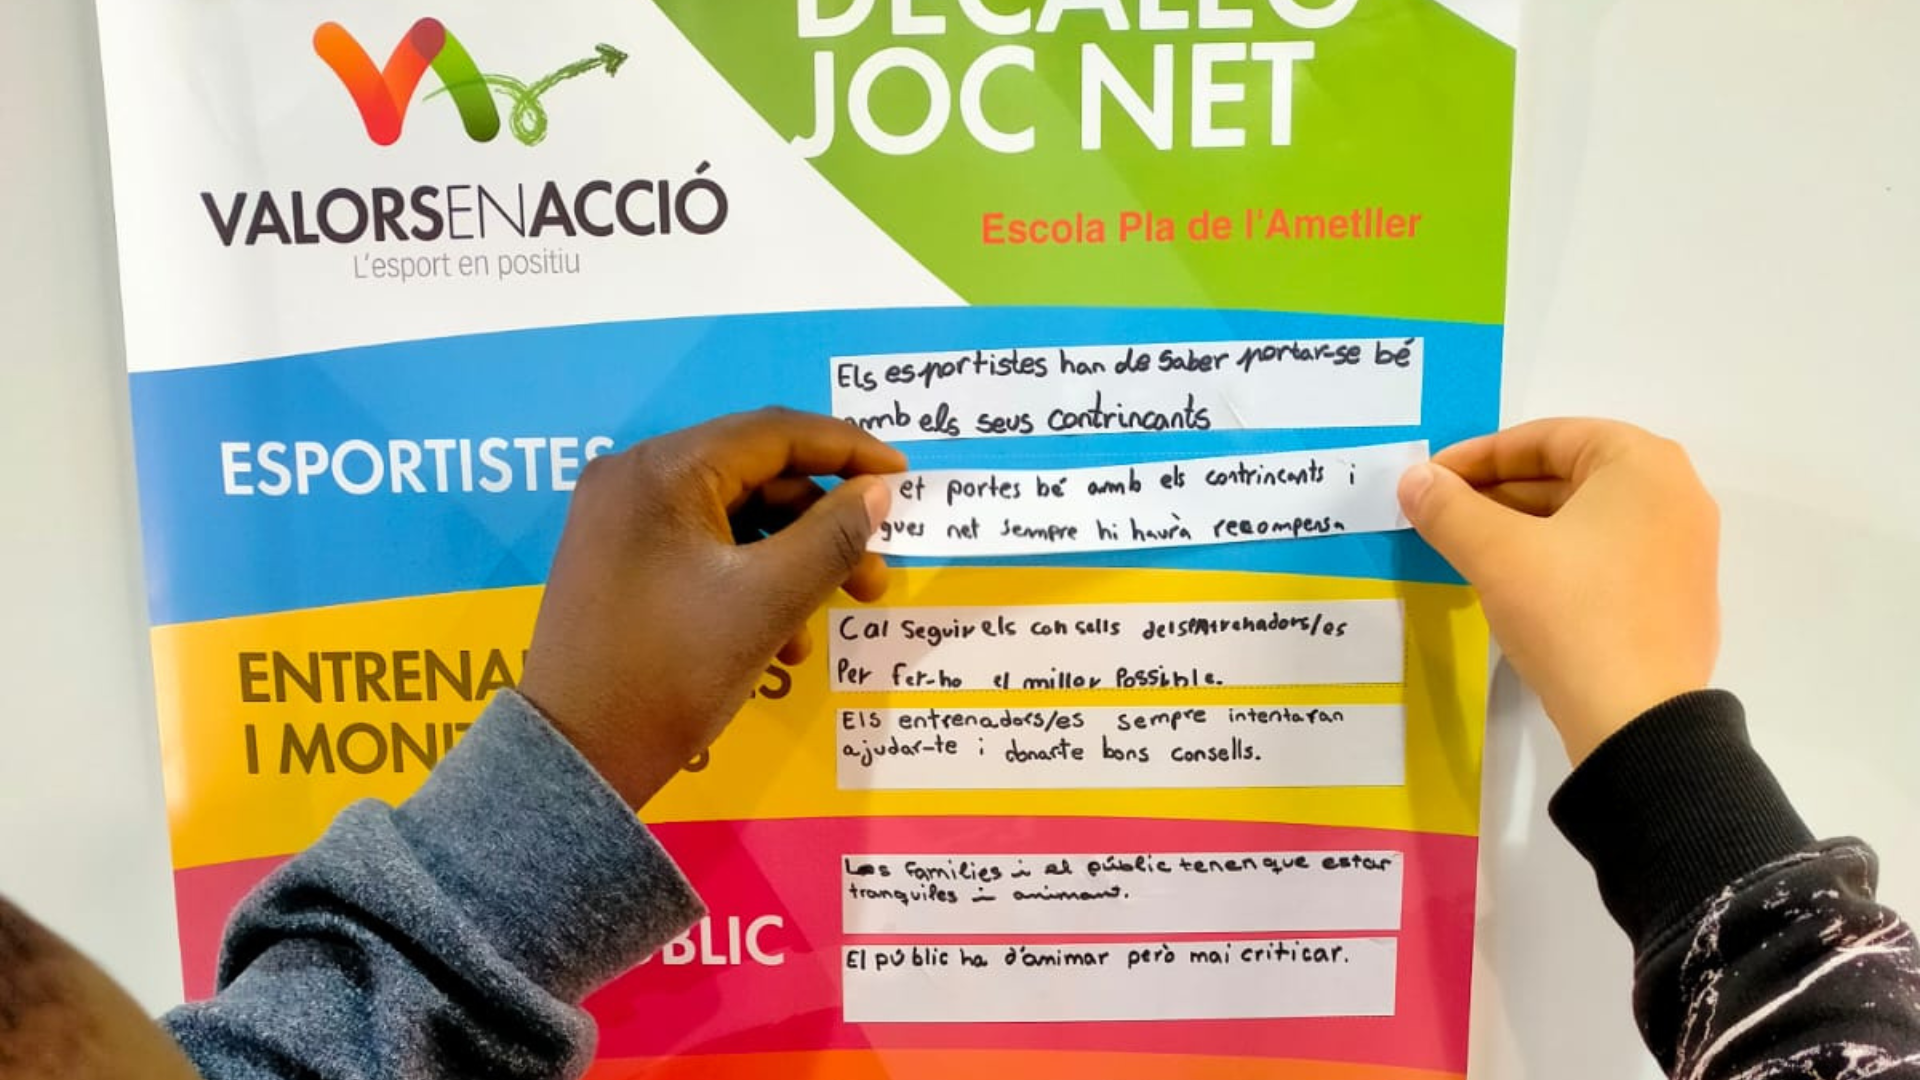 DECÀLEG
JOC NET
VALORSENACCIÓ
L'esport en positiu
Escola Pla de l'Ametller
ESPORTISTES
Els esportistes han de saber portar-se bé
amb els seus contrincants
et portes bé amb els contrincants i
gues net sempre hi haurà recompensa
ENTRENA ES
I MONI S
Cal seguir els consells dels entrenadors/es
Per fer-ho el millor Possible.
Els entrenadors/es sempre intentaran
ajudar-te i donarte bons consells.
BLIC
Les famílies i el públic tenen que estar
tranquiles i animant.
El públic ha d'animar però mai criticar.